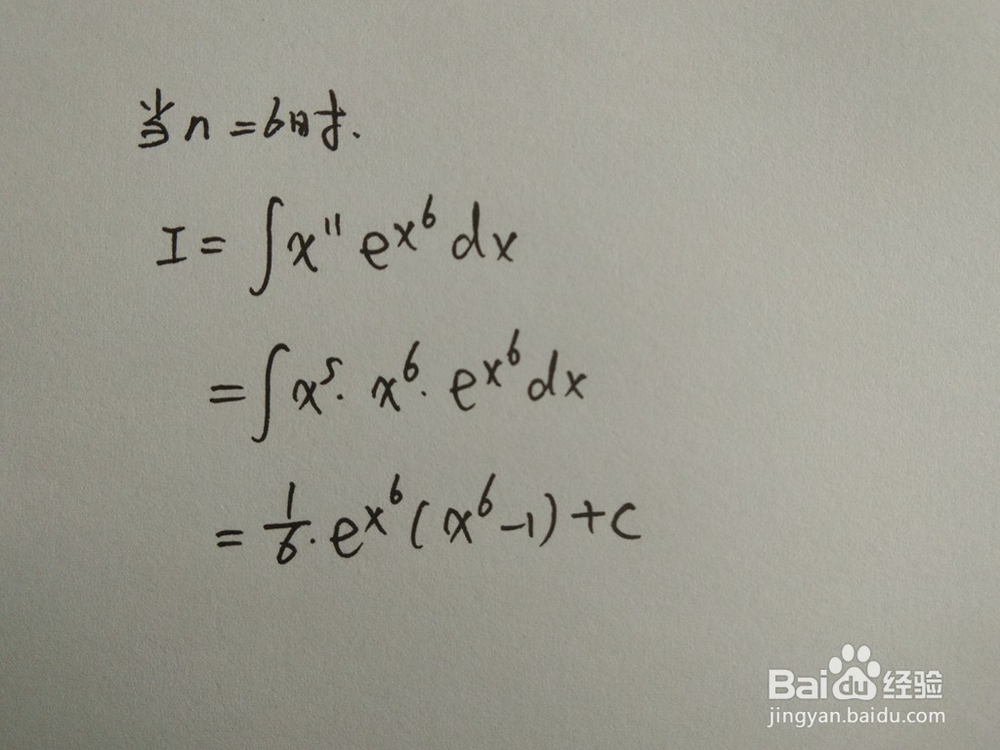 当n=6时.
I = ∫x¹¹ e^{x⁶} dx
= ∫x⁵· x⁶· e^{x⁶} dx
= 1/6 · e^{x⁶} (x⁶-1)+C
Baidu经验
jingyan.baidu.com